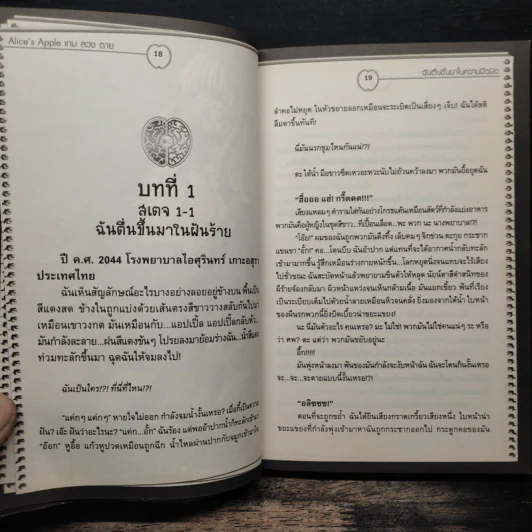 Alice's Apple เกม ลวง ตาย
18
บทที่ 1
สเตจ 1-1
ฉันตื่นขึ้นมาในฝันร้าย
ปี ค.ศ. 2044 โรงพยาบาลไอศุรินทร์ เกาะอสุร
ประเทศไทย
ฉันเห็นสัญลักษณ์อะไรบางอย่างลอยอยู่ข้างบน พื้นเป็น
สีแดงสด ข้างในถูกแบ่งด้วยเส้นตรงสีขาววางสลับกันไปมา
เหมือนเขาวงกต มันเหมือนกับ...แอปเปิ้ล แอปเปิ้ลกลับหัว...
มันกำลังละลาย...ฝนสีแดงข้นๆ โปรยลงมาย้อมร่างฉัน...น้ำสีแดง
ท่วมทะลักขึ้นมา ฉุดฉันให้จมลงไป!
ฉันเป็นใคร!?! ที่นี่ที่ไหน!?!
"แค่กๆ แค่กๆ" หายใจไม่ออก กำลังจมน้ำงั้นเหรอ? เมื่อกี้เป็นความ
ฝัน? เอ๊ะ ฝันว่าอะไรนะ? "แค่ก...อั้ก" ฉันร้อง แต่พออ้าปากน้ำก็ทะลักเข้ามา
"อ๊อก" หูอื้อ แก้วหูปวดเหมือนถูกฉีก น้ำไหลผ่านปากกับจมูกเข้ามาใน
19
ฉันตื่นขึ้นมาในความมืดมิด
ลำคอไม่หยุด ในหัวขยายออกเหมือนจะระเบิดเป็นเสี่ยงๆ เจ็บ! ฉันได้สติ
ลืมตาขึ้นทันที!
นี่มันนรกขุมไหนกันแน่!?!
ตะ ใต้น้ำ มือขาวซีดเหวอะหวะนับไม่ถ้วนคว้าลงมา พวกมันยื้อยุดฉัน
"ฮื่อออ แฮ่! กรี๊ดดด!!!"
เสียงแหลมๆ คำรามใส่กันอย่างโกรธแค้นเหมือนสัตว์ที่กำลังแย่งอาหาร
พวกมันคือผู้หญิงในชุดสีขาว...ที่เปื้อนเลือด...พะ พวก นะ นางพยาบาล!?!
"โอ๊ย!" ผมของฉันถูกพวกมันดึงทึ้ง เล็บคมๆ จิกข่วน ตะกุย กระชาก
แขนขา "อั้ก!" คอ...โดนบีบ ฉันอ้าปาก แต่แทนที่จะได้อากาศน้ำกลับทะลัก
เข้ามามากขึ้น รู้สึกเหมือนร่างกายหนักขึ้น...โลกหยุดนิ่งจนแทบจะไร้เสียง
ไปชั่วขณะ ฉันสะบัดหน้าแล้วพยายามขืนตัวให้หลุด นัยน์ตาสีดำสนิทของ
ผีร้ายจ้องกลับมา ผิวหน้าแหว่งจนเห็นกล้ามเนื้อ มันแยกเขี้ยว ฟันที่เรียง
เป็นระเบียบเต็มไปด้วยน้ำลายเหมือนหิวจนคลั่ง ยิ่งมองจากใต้น้ำ ใบหน้า
ของผีนรกพวกนี้ยิ่งบิดเบี้ยวน่าขยะแขยง!
นะ นี่มันตัวอะไร คนเหรอ? มะ ไม่ใช่! พวกมันไม่ใช่คนแน่ๆ ระ หรือ
ว่า ศพ? ตะ แต่ว่า พวกมันขยับอยู่นะ
อึ๊ก!!!!!
มันพุ่งหน้าลงมา ฟันของมันกำลังจะงับหน้าฉัน ฉันจะโดนกินงั้นเหรอ
จะ...จะ...จะตายแบบนี้งั้นเหรอ!?!
"อลิซซซ!"
ตอนที่จะถูกขย้ำ ฉันได้ยินเสียงกราดเกรี้ยวเสียงหนึ่ง ใบหน้าน่า
ขยะแขยงที่กำลังพุ่งเข้ามาหาฉันถูกกระชากออกไป กระดูกคอของมัน